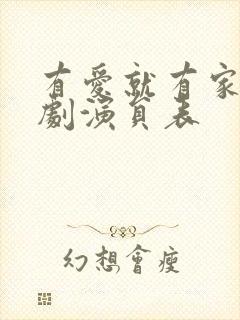 有愛就有家
劇演員表
幻想會瘦